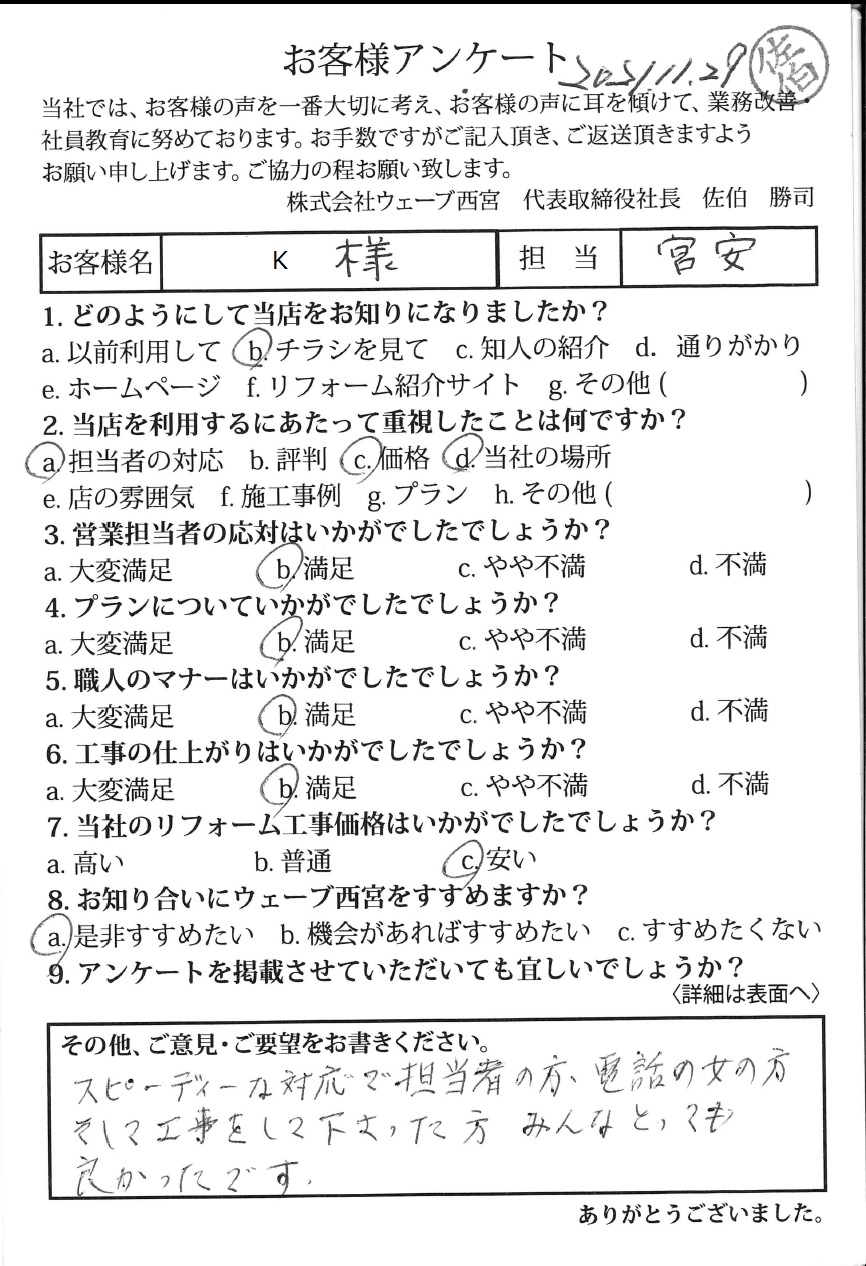 お客様アンケート 2021.11.29 佐伯
当社では、お客様の声を一番大切に考え、お客様の声に耳を傾けて、業務改善・
社員教育に努めております。お手数ですがご記入頂き、ご返送頂きますよう
お願い申し上げます。ご協力の程お願い致します。
株式会社ウェーブ西宮 代表取締役社長 佐伯 勝司
お客様名 K 様 担 当 宮安
1. どのようにして当店をお知りになりましたか？
a. 以前利用して b. チラシを見て c. 知人の紹介 d. 通りがかり
e. ホームページ f. リフォーム紹介サイト g. その他 ( )
2. 当店を利用するにあたって重視したことは何ですか？
a. 担当者の対応 b. 評判 c. 価格 d. 当社の場所
e. 店の雰囲気 f. 施工事例 g. プラン h. その他 ( )
3. 営業担当者の応対はいかがでしたでしょうか？
a. 大変満足 b. 満足 c. やや不満 d. 不満
4. プランについていかがでしたでしょうか？
a. 大変満足 b. 満足 c. やや不満 d. 不満
5. 職人のマナーはいかがでしたでしょうか？
a. 大変満足 b. 満足 c. やや不満 d. 不満
6. 工事の仕上がりはいかがでしたでしょうか？
a. 大変満足 b. 満足 c. やや不満 d. 不満
7. 当社のリフォーム工事価格はいかがでしたでしょうか？
a. 高い b. 普通 c. 安い
8. お知り合いにウェーブ西宮をすすめますか？
a. 是非すすめたい b. 機会があればすすめたい c. すすめたくない
9. アンケートを掲載させていただいても宜しいでしょうか？
〈詳細は表面へ〉
その他、ご意見・ご要望をお書きください。
スピーディーな対応で担当者の方、電話の女の方
そして工事をして下さった方 みんなとっても
良かったです.
ありがとうございました。